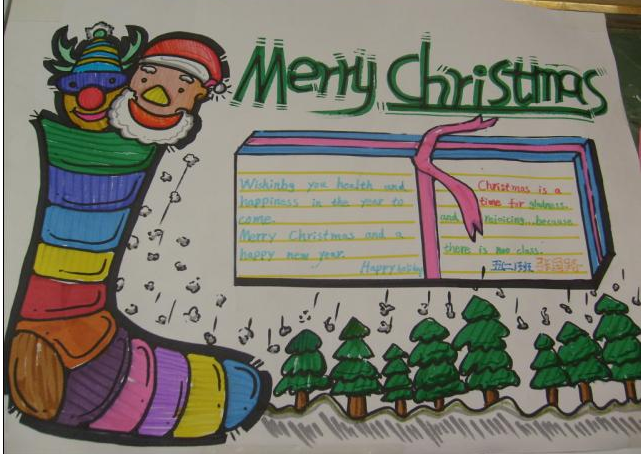 Merry Christmas
Wishinby you health and
happiness in the year to
come.
Merry Christmas and a
happy new year.
Christmas is a
time for gladness
and reinicing...because
there is noo class.